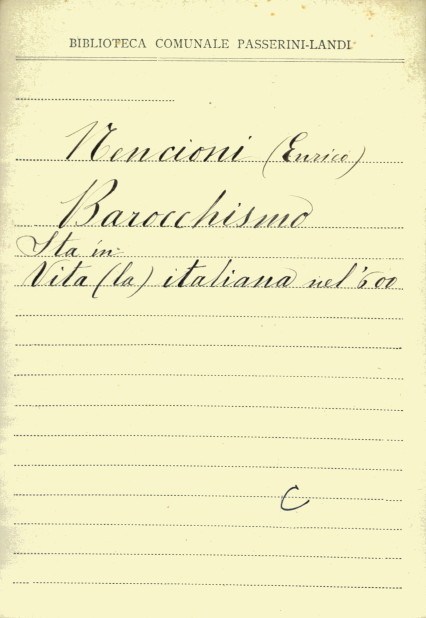 BIBLIOTECA COMUNALE PASSERINI-LANDI
Nencioni (Enrico)
Barocchismo
Sta in:
Vita (la) italiana nel '600
C